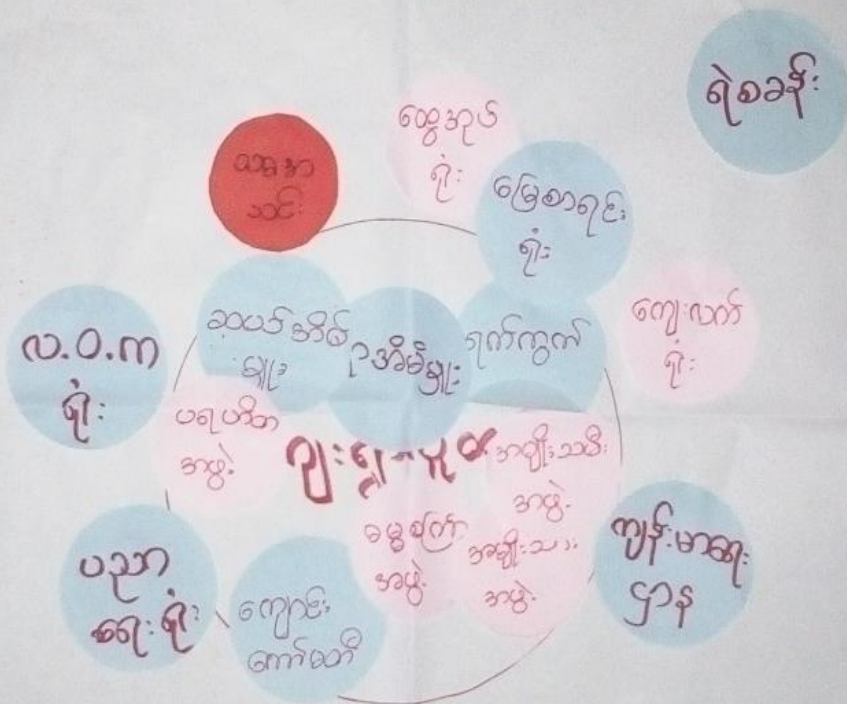 ရဲစခန်း
ထွေအုပ်
ရုံး
သင်း
မြေစာရင်း
ရုံး
ကျေးလက်
ရုံး
လ.ဝ.က
ရုံး
ဆယ်အိမ်
မှူး
ဥအိမ်မှူး
ရက်ကွက်
ပရဟိတ
အဖွဲ့
အမျိုးသမီး
အဖွဲ့
ဓမ္မစကြာ
အဖွဲ့
အမျိုးသား
အဖွဲ့
ကျန်းမာရေး
ဌာန
ပညာ
ရေးရုံး
ကျောင်း
ကော်မတီ